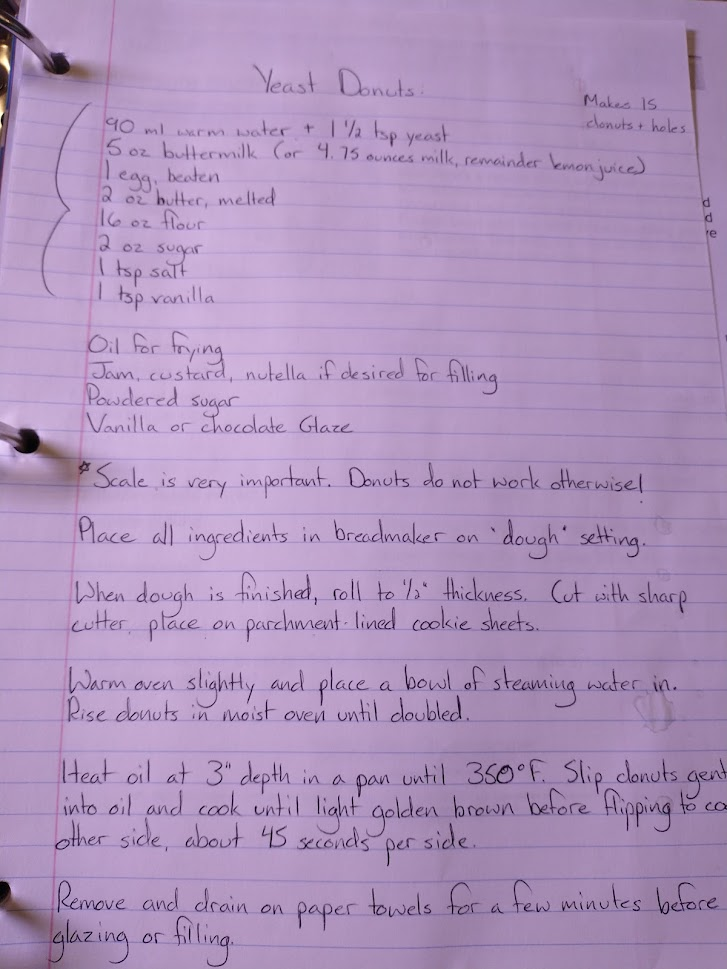 Yeast Donuts.
Makes 15
donuts + holes
90 ml warm water + 1 1/2 tsp yeast
5 oz buttermilk (or 4.75 ounces milk, remainder lemon juice)
1 egg, beaten
2 oz butter, melted
16 oz flour
2 oz sugar
1 tsp salt
1 tsp vanilla
Oil for frying
Jam, custard, nutella if desired for filling
Powdered sugar
Vanilla or chocolate Glaze
*Scale is very important. Donuts do not work otherwise!
Place all ingredients in breadmaker on "dough" setting.
When dough is finished, roll to 1/2" thickness. Cut with sharp
cutter, place on parchment-lined cookie sheets.
Warm oven slightly and place a bowl of steaming water in.
Rise donuts in moist oven until doubled.
Heat oil at 3" depth in a pan until 350°F. Slip donuts gent
into oil and cook until light golden brown before flipping to co
other side, about 45 seconds per side.
Remove and drain on paper towels for a few minutes before
glazing or filling.
d
d
re